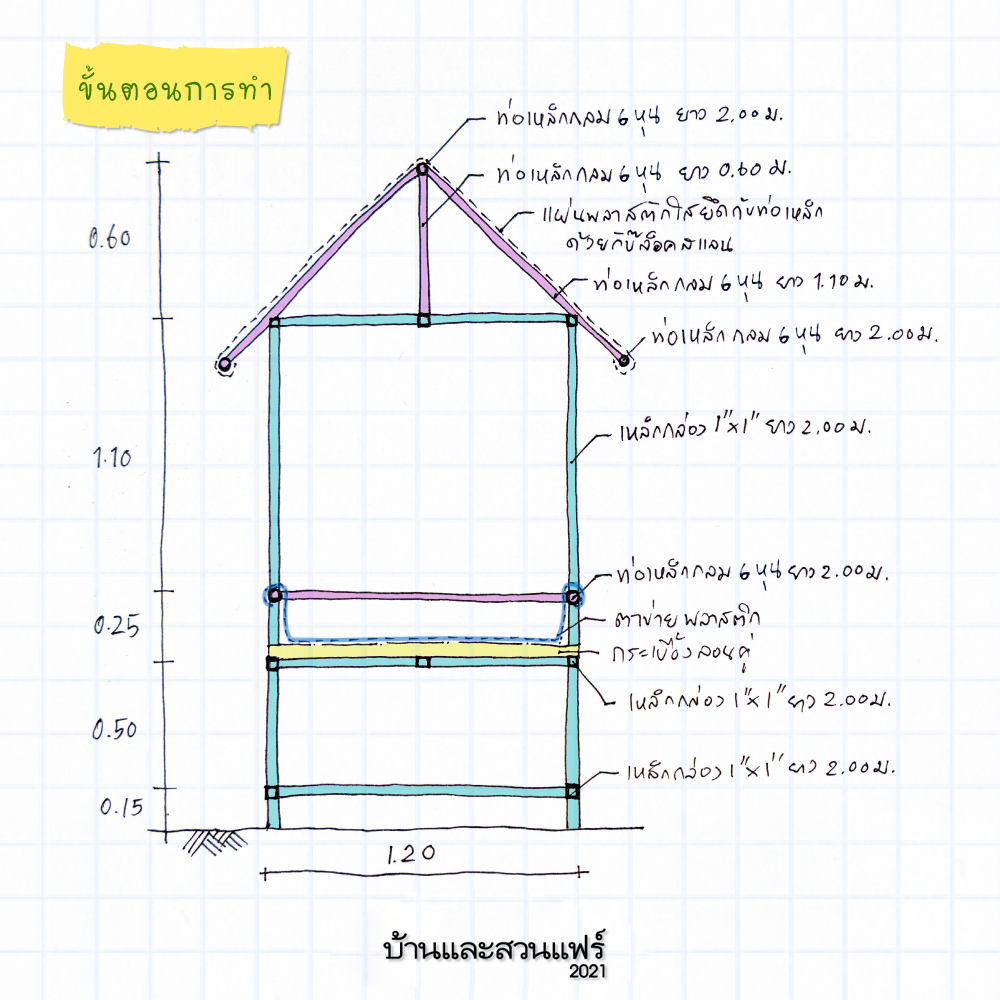 ขั้นตอนการทำ
ท่อเหล็กกลม 6 หุน ยาว 2.00 ม.
ท่อเหล็กกลม 6 หุน ยาว 0.60 ม.
แผ่นพลาสติกใสยึดกับท่อเหล็ก
ด้วยกิ๊บล็อคสแลน
ท่อเหล็กกลม 6 หุน ยาว 1.10 ม.
ท่อเหล็กกลม 6 หุน ยาว 2.00 ม.
เหล็กกล่อง 1"x1" ยาว 2.00 ม.
ท่อเหล็กกลม 6 หุน ยาว 2.00 ม.
ตาข่ายพลาสติก
กระเบื้องลอนคู่
เหล็กกล่อง 1"x1" ยาว 2.00 ม.
เหล็กกล่อง 1"x1" ยาว 2.00 ม.
0.60
1.10
0.25
0.50
0.15
1.20
บ้านและสวนแฟร์
2021